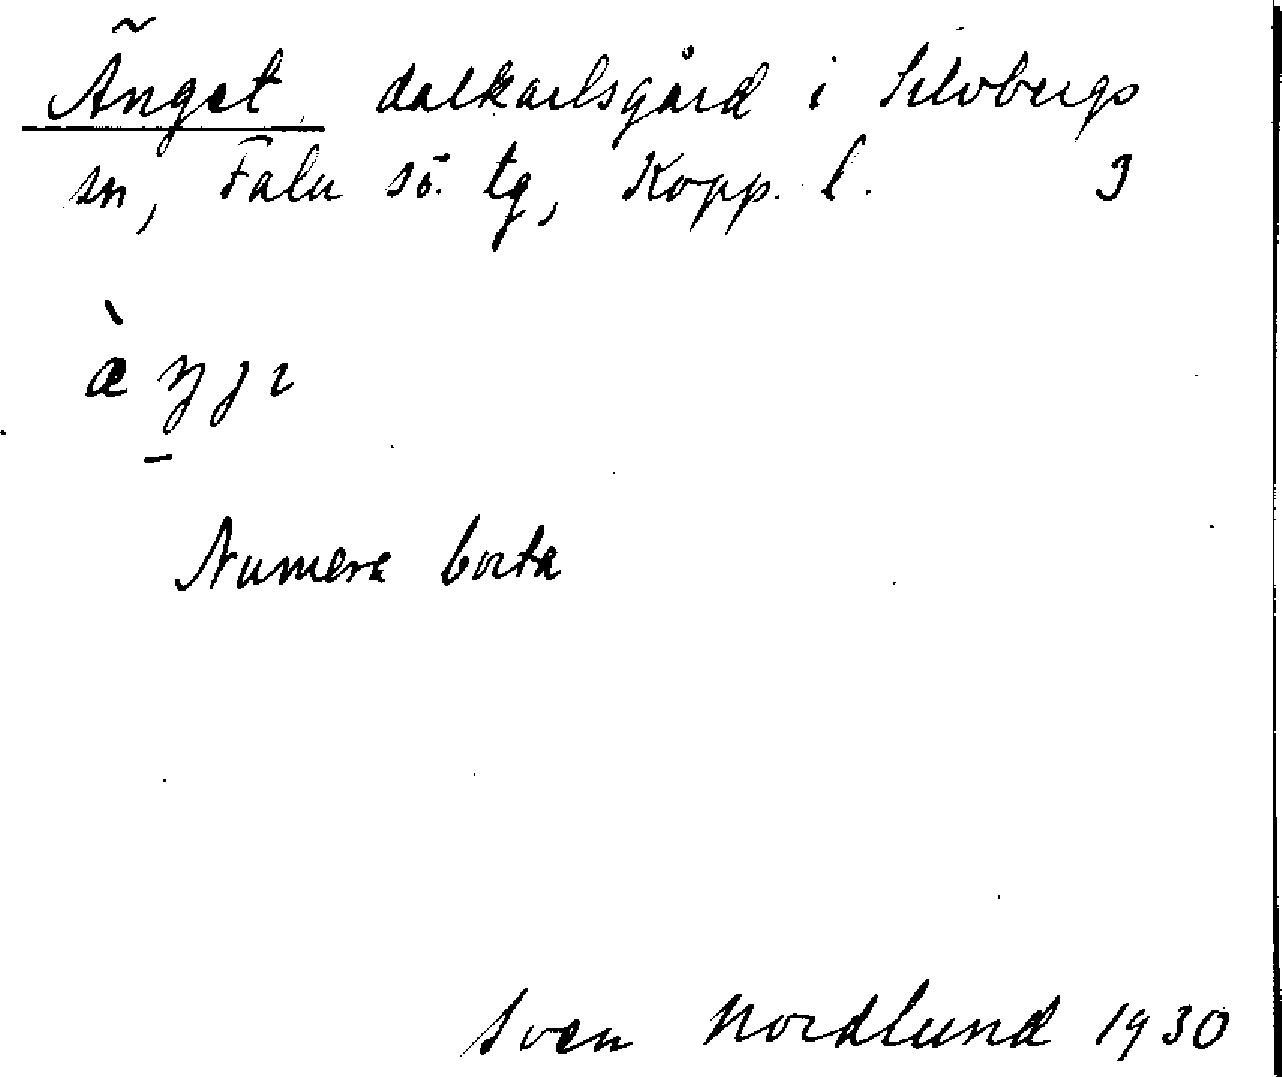 Änget dalkarlsgård i Silvbergs
sn, Falu sö. tg, Kopp. l. 9
Numera borta
Sven Nordlund 1930